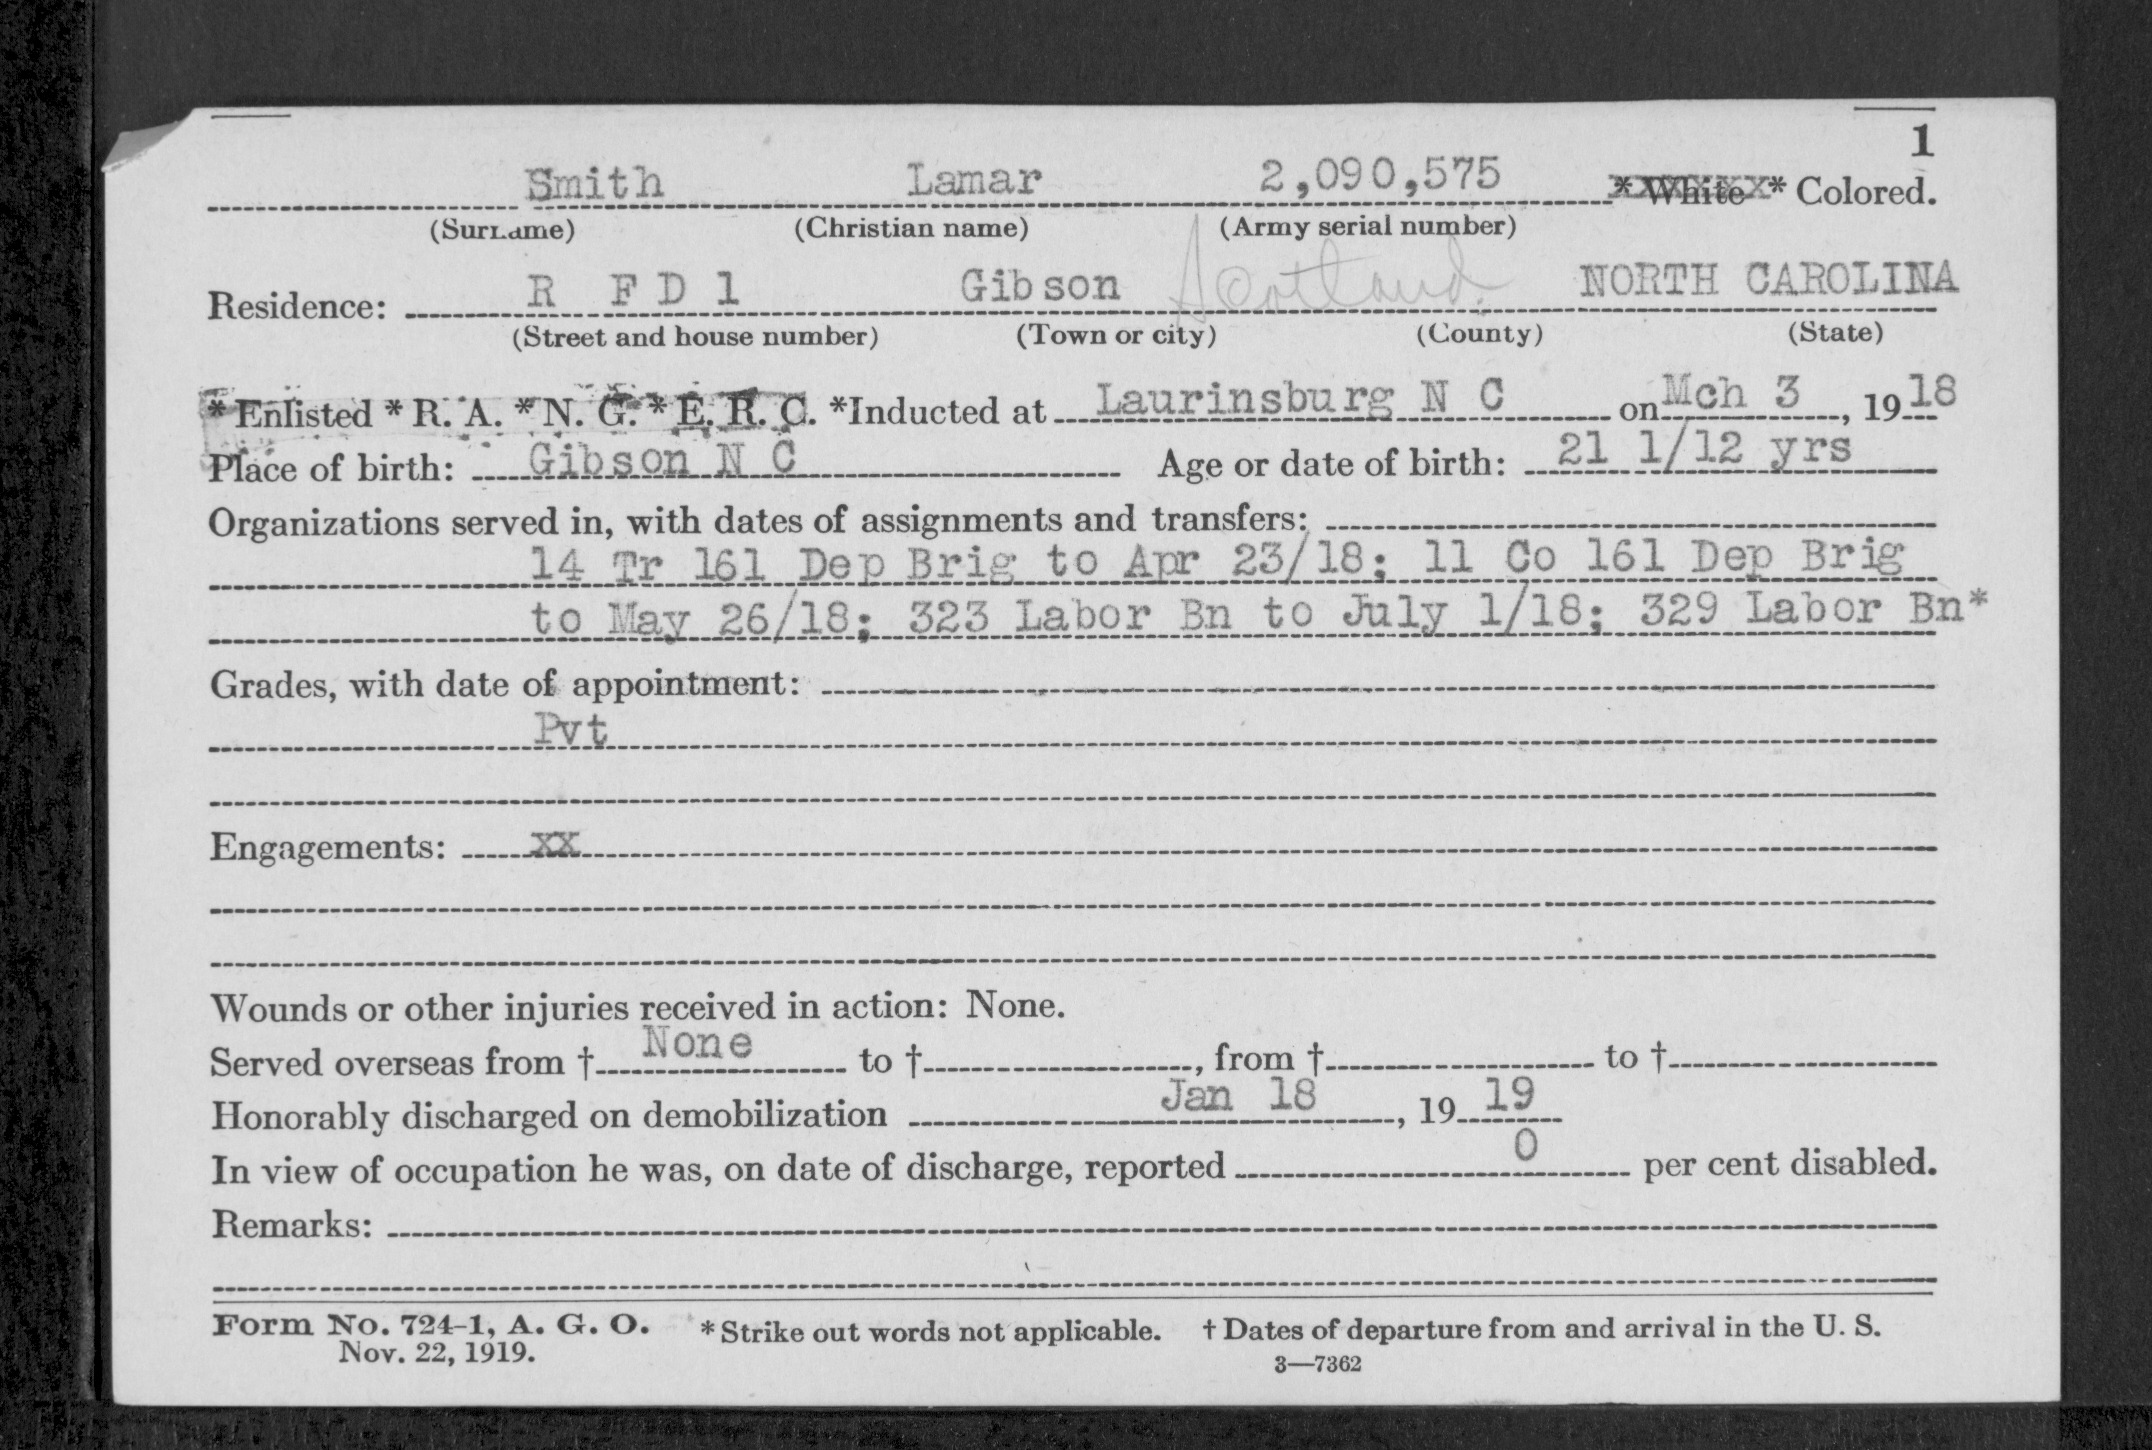 1
Smith Lamar 2,090,575 * White * Colored.
(Surname) (Christian name) (Army serial number)
Residence: R F D 1 Gibson Scotland NORTH CAROLINA
(Street and house number) (Town or city) (County) (State)
* Enlisted * R. A. * N. G. * E. R. C. *Inducted at Laurinsburg N C on Mch 3, 1918
Place of birth: Gibson N C Age or date of birth: 21 1/12 yrs
Organizations served in, with dates of assignments and transfers:
14 Tr 161 Dep Brig to Apr 23/18; 11 Co 161 Dep Brig
to May 26/18; 323 Labor Bn to July 1/18; 329 Labor Bn*
Grades, with date of appointment:
Pvt
Engagements: xx
Wounds or other injuries received in action: None.
Served overseas from † None to †, from † to †
Honorably discharged on demobilization Jan 18, 1919
In view of occupation he was, on date of discharge, reported 0 per cent disabled.
Remarks:
Form No. 724-1, A. G. O. * Strike out words not applicable. † Dates of departure from and arrival in the U. S.
Nov. 22, 1919. 3—7362